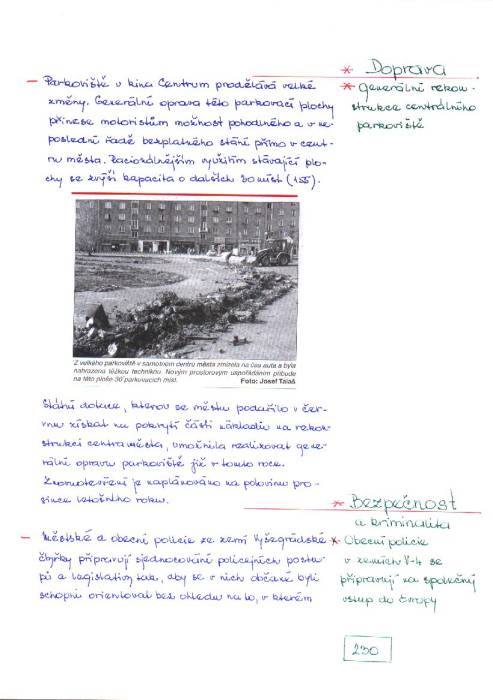 * Doprava
* generální rekon-
strukce centrálního
parkoviště
– Parkoviště u kina Centrum prodělává velké
změny. Generální oprava této parkovací plochy
přinese motoristům možnost pohodlného a v ne-
poslední řadě bezplatného stání přímo v cent-
ru města. Racionálnějším využitím stávající plo-
chy se zvýší kapacita o dalších 30 míst (155).
Z velkého parkoviště v samotném centru města zmizela na čas auta a byla
nahrazena těžkou technikou. Novým prostorovým uspořádáním přibude
na této ploše 30 parkovacích míst. Foto: Josef Talaš
Státní dotace, kterou se městu podařilo v čer-
vnu získat na pokrytí části nákladů na rekon-
strukci centra města, umožnila realizovat gene-
rální opravu parkoviště již v tomto roce.
Znovuotevření je naplánováno na polovinu pro-
since letošního roku.
* Bezpečnost
a kriminalita
– Městské a obecní policie ze zemí Vyšegrádské
čtyřky připravují sjednocování policejních postu-
pů a legislativy tak, aby se v nich občané byli
schopni orientovat bez ohledu na to, v kterém
* Obecní policie
v zemích V-4 se
připravují na společný
vstup do Evropy
230